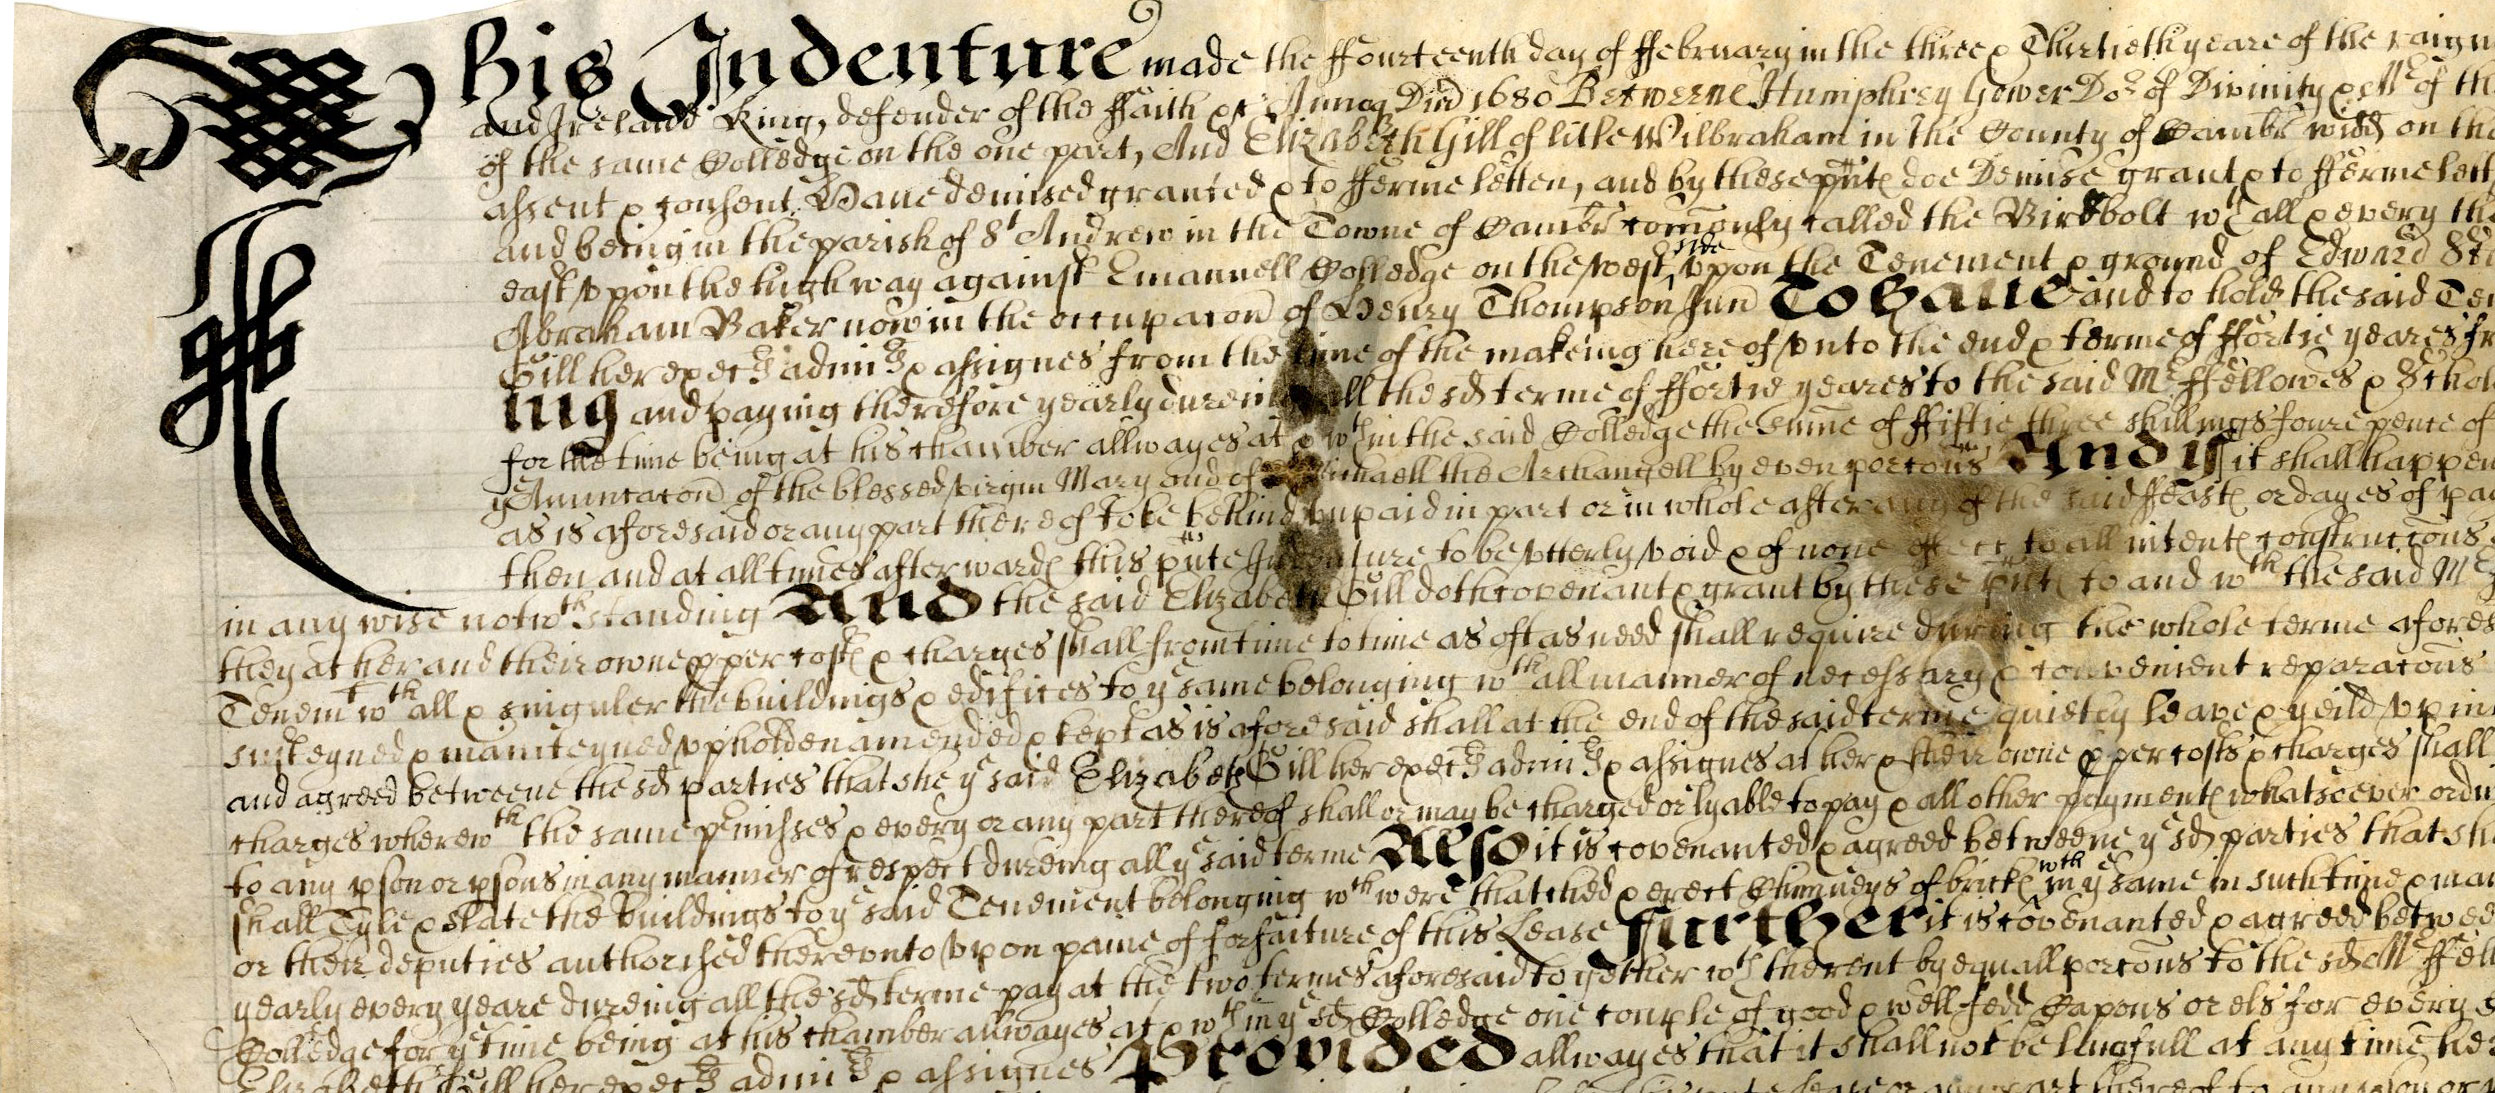 This Indenture made the ffourteenth day of ffebruary in the three & Thirtieth yeare of the raigne
and Ireland King, defender of the ffaith &c Annoq Dñi 1680 Betweene Humphrey Gower Dor of Divinity & Mr of the
of the same Colledge on the one part, And Elizabeth Gill of litle Wilbraham in the County of Cambr widd on the
assent & consent Have demised granted & to fferme letten, and by these pñts doe Demise grant & to fferme lett
and being in the parish of St Andrew in the Towne of Cambr comonly called the Birdbolt wth all & every the
east vpon the high way against Emanuell Colledge on the west side vpon the Tenement & ground of Edward
Abraham Baker now in the occupacon of Henry Thompson Jun To Have and to hold the said Ten
Gill her exectrs admrs & assignes from the time of the makeing hereof vnto the end & terme of ffortie yeares fr
ing and paying therefore yearly dureing all the sd terme of ffortie yeares to the said Mr ffellowes & Schol
for the time being at his chamber allwayes at & wthin the said Colledge the sume of ffiftie three shillings foure pence of
ye Annuncacon of the blessed virgin Mary and of Michaell the Archangell by even porcons And if it shall happen
as is aforesaid or any part thereof to be behind vnpaid in part or in whole after any of the said ffeasts or dayes of pay
then and at all times afterwards this pñte Indenture to be vtterly void & of none effect to all intents construccons
in any wise notwthstanding And the said Elizabeth Gill doth covenant & grant by these pñts to and wth the said Mr
they at her and their owne pper costs & charges shall from time to time as oft as need shall require dureing the whole terme afores
Tenemt wth all & singuler the buildings & edifices to ye same belonging wth all manner of necessary & convenient reparacons
susteyned & mainteyned vpholden amended & kept as is aforesaid shall at the end of the said terme quietly leave & yeild vp in
and agreed betweene the sd parties that she ye said Elizabeth Gill her exectrs admrs & assignes at her & their owne pper costs & charges shall
charges wherewth the same pemisses & every or any part thereof shall or may be charged or lyable to pay & all other payments whatsoever ordin
to any pson or psons in any manner of respect dureing all ye said terme Also it is covenanted & agreed betweene ye sd parties that she
shall Tyle & slate the buildings to ye said Tenement belonging wch were thatched & erect Chimneys of bricks wthin ye same in such time & man
or their deputies authorised therevnto vpon paine of forfaiture of this Lease Further it is covenanted & agreed betwee
yearly every yeare dureing all the sd terme pay at the two termes aforesaid together wth the rent by equall porcons to the sd Mr ffell
Colledge for ye time being at his chamber allwayes at & wthin ye sd Colledge one couple of good & well fedd Capons or els for every
Elizabeth Gill her exectrs admrs & assignes Provided allwayes that it shall not be lawfull at any time her